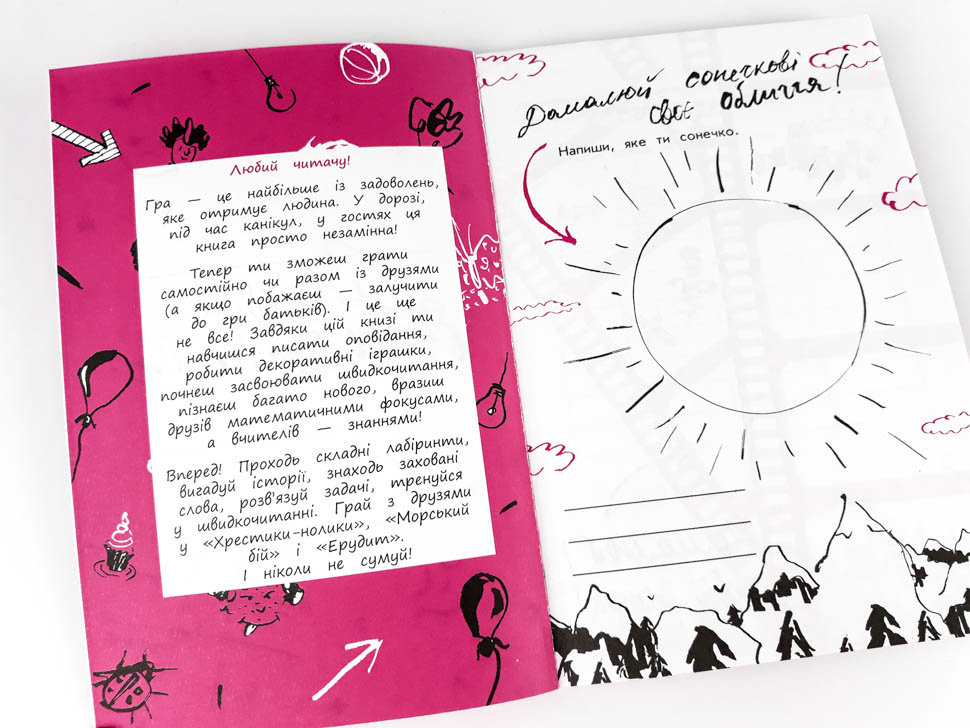 Любий читачу!
Гра — це найбільше із задоволень,
яке отримує людина. У дорозі,
під час канікул, у гостях ця
книга просто незамінна!
Тепер ти зможеш грати
самостійно чи разом із друзями
(а якщо побажаєш — залучити
до гри батьків). І це ще
не все! Завдяки цій книзі ти
навчишся писати оповідання,
робити декоративні іграшки,
почнеш засвоювати швидкочитання,
пізнаєш багато нового, вразиш
друзів математичними фокусами,
а вчителів — знаннями!
Вперед! Проходь складні лабіринти,
вигадуй історії, знаходь заховані
слова, розв'язуй задачі, тренуйся
у швидкочитанні. Грай з друзями
у «Хрестики-нолики», «Морський
бій» і «Ерудит».
І ніколи не сумуй!
Домалюй сонечкові
своє обличчя!
Напиши, яке ти сонечко.